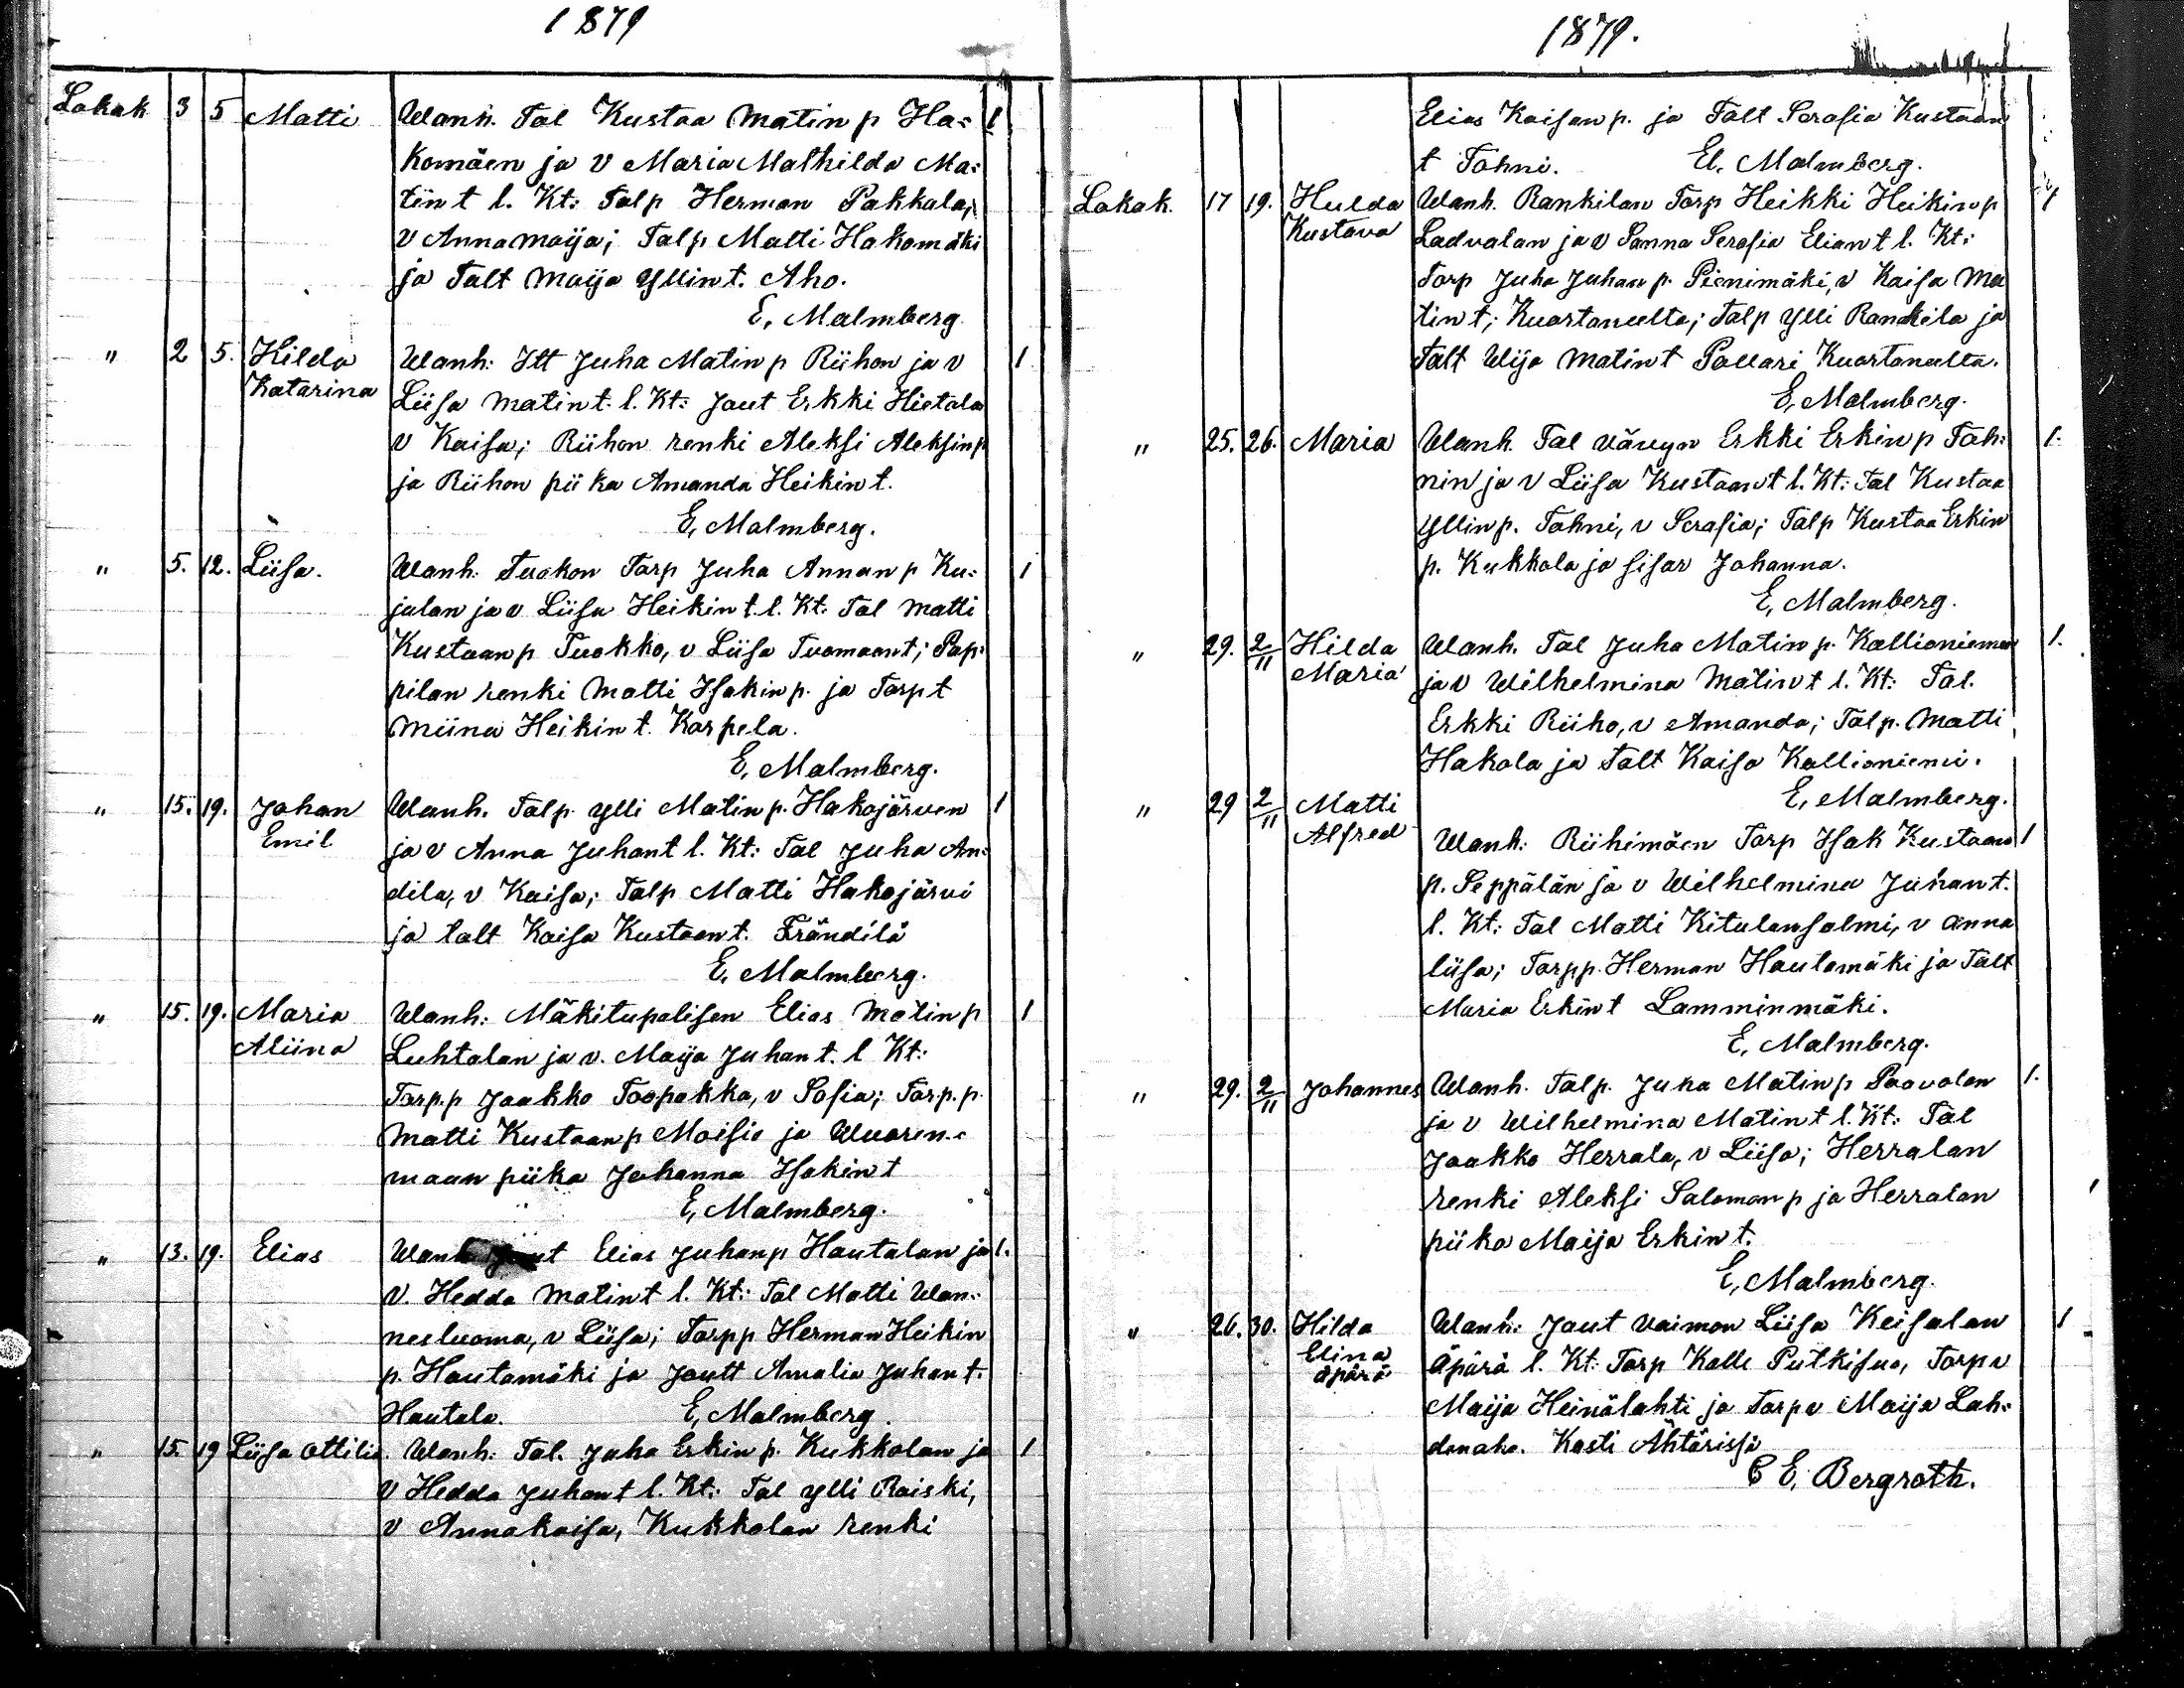 1879
Lokak 3 5 Matti Wanh. Tal Kustaa Matin p Ha= 1
komäen ja v Maria Mathilda Ma=
tin t l. Kt: Talp Herman Pakkala,
v Annamaija; Talp Matti Hakomäki
ja Talt Maija Yllin t. Aho.
E. Malmberg
" 2 5. Hilda Wanh: Itt Juha Matin p Riihon ja v 1
Katarina Liisa Matin t. l. Kt: Jaut Erkki Hietala
v Kaisa; Riihon renki Aleksi Aleksin p
ja Riihon piika Amanda Heikin t.
E. Malmberg.
" 5. 12. Liisa. Wanh: Tuokon Torp Juha Annan p Ku= 1
jalan ja v Liisa Heikin t. l. Kt. Tal Matti
Kustaan p Tuokko, v Liisa Tuomaant; Pap=
pilan renki Matti Isakin p. ja Torpt
Miina Heikin t. Karpela.
E. Malmberg.
" 15. 19. Johan Wanh. Talp. Ylli Matin p. Hakojärven 1
Emil ja v Anna Juhant l. Kt: Tal Juha An=
dila, v Kaisa; Talp Matti Hakojärvi
ja talt Kaisa Kustaan t. Frändilä
E. Malmberg.
" 15. 19. Maria Wanh: Mäkitupalisen Elias Matin p 1
Aliina Luhtalan ja v. Maija Juhan t. l Kt:
Torp.p Jaakko Toopakka, v Sofia; Torp.p.
Matti Kustaan p Moisio ja Wuoren=
maan piika Johanna Isakin t
E. Malmberg.
" 13. 19. Elias Wanh Elias Juhan p Hautalan ja 1.
v. Hedda Matin t l. Kt: Tal Matti Wan=
nesluoma, v Liisa; Torpp Herman Heikin
p. Hautamäki ja Jautt Amalia Juhan t.
Hautala. E. Malmberg.
" 15. 19 Liisa Ottilia. Wanh: Tal. Juha Erkin p. Kukkolan ja 1
v Hedda Juhant l. Kt: Tal Ylli Raiski,
v Annakaisa, Kukkolan renki
1879.
Elias Kaisan p. ja Talt Serafia Kustaan
t Tohni. E. Malmberg.
Lokak. 17 19. Hulda Wanh. Rankilan Torp Heikki Heikin p 1
Kustava Ladvalan ja v Sanna Serafia Elian t l. Kt:
Torp Juha Juhan p. Pienimäki, v Kaisa Ma
tin t; Kuortaneelta; Talp Ylli Rankila ja
Talt Wija Matin t Pollari Kuortaneelta.
E. Malmberg.
" 25. 26. Maria Wanh. Tal vävyn Erkki Erkin p Toh= 1.
nin ja v Liisa Kustaan t l. Kt: Tal Kustaa
Yllin p. Tohni, v Serafia; Talp Kustaa Erkin
p. Kukkola ja sisar Johanna.
E. Malmberg.
" 29. 2/11 Hilda Wanh. Tal Juha Matin p. Kallioniemen 1.
Maria ja v Wilhelmina Matin t l. Kt: Tal.
Erkki Riiho, v Amanda; Talp. Matti
Hakola ja Talt Kaisa Kallioniemi.
E. Malmberg.
" 29 2/11 Matti
Alfred Wanh: Riihimäen Torp Isak Kustaan 1
p. Seppälän ja v Wilhelmina Juhan t.
l. Kt: Tal Matti Kitulansalmi, v Anna
liisa; Torpp. Herman Hautamäki ja Talt
Maria Erkin t Lamminmäki.
E. Malmberg.
" 29. 2/11 Johannes Wanh. Talp. Juha Matin p Paavolan 1.
ja v Wilhelmina Matin t l. Kt: Tal
Jaakko Herrala, v Liisa; Herralan
renki Aleksi Salomon p ja Herralan
piika Maija Erkin t.
E. Malmberg.
" 26. 30. Hilda Wanh: Jaut vaimon Liisa Keisalan 1
Elina äpärä l. Kt: Torp Kalle Putkisuo, Torp v
äpärä Maija Heinälahti ja Torp v Maija Lah=
denaho. Kasti Ähtärissä
C E. Bergroth.